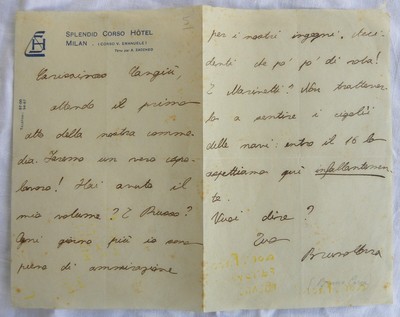 SPLENDID CORSO HÔTEL
MILAN - (CORSO V. EMANUELE)
Carissimo Cangiù
attendo il primo
atto della nostra comme-
dia. Faremo un vero capo-
lavoro! Hai avuto il
mio volume? E
Ogni giorno più io sono
pieno di ammirazione
per i nostri ingegni.
denti che po' po' di roba!
E Marinetti? Non trattener-
lo a sentire i cigolii
delle navi: entro il 16 lo
aspettiamo qui infallantemen-
te.
Vuoi dire?
Tuo
Bruno Corra